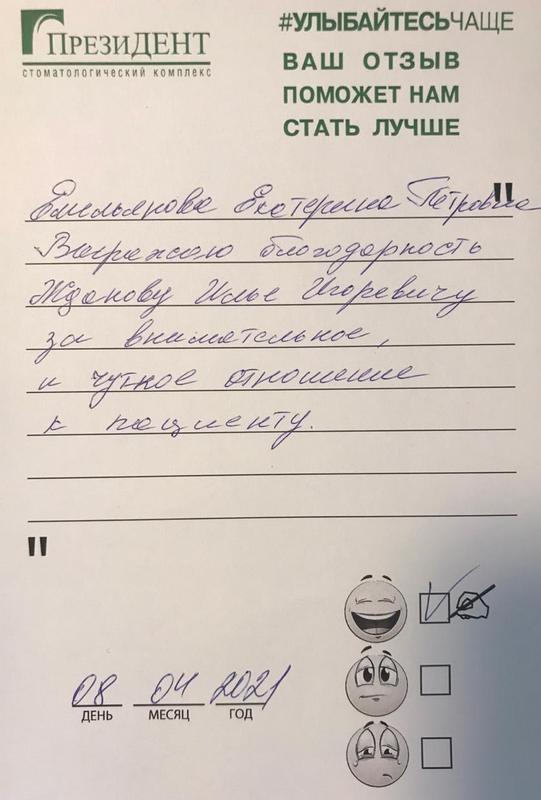 ПРЕЗИДЕНТ
СТОМАТОЛОГИЧЕСКИЙ КОМПЛЕКС
#УЛЫБАЙТЕСЬЧАЩЕ
ВАШ ОТЗЫВ
ПОМОЖЕТ НАМ
СТАТЬ ЛУЧШЕ
"
Емельянова Екатерина Петровна
Выражаю благодарность
Жданову Илье Игоревичу
за внимательное,
и чуткое отношение
к пациенту.
"
08 04 2021
ДЕНЬ МЕСЯЦ ГОД